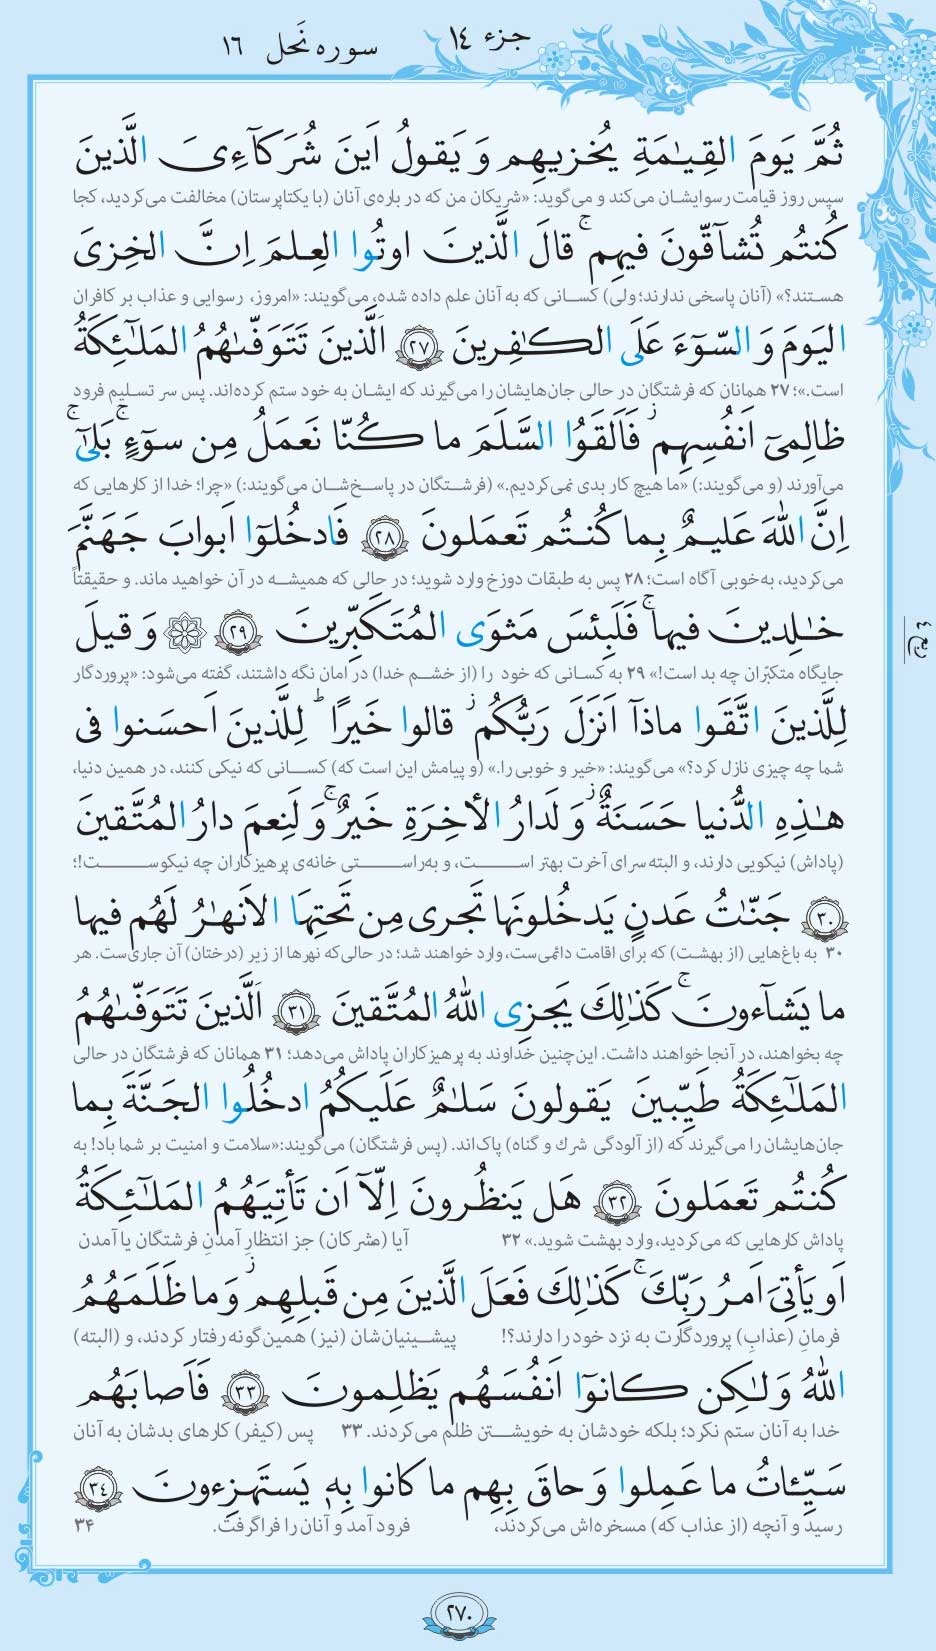 جزء ١٤
سوره نَحل ١٦
ثُمَّ يَومَ القِيـٰمَةِ يُخزيهِم وَ يَقولُ اَينَ شُرَكآءِىَ الَّذينَ
سپس روز قیامت رسوایشان می‌کند و می‌گوید: «شریکان من که در باره‌ی آنان (با یکتاپرستان) مخالفت می‌کردید، کجا
كُنتُم تُشآقّونَ فيهِم ۚ قالَ الَّذينَ اوتُوا العِلمَ اِنَّ الخِزىَ
هستند؟» (آنان پاسخی ندارند؛ ولی) کسانی که به آنان علم داده شده، می‌گویند: «امروز، رسوایی و عذاب بر کافران
اليَومَ وَ السّوٓءَ عَلَى الكـٰفِرينَ ﴿٢٧﴾ اَلَّذينَ تَتَوَفّىٰهُمُ المَلـٰٓئِكَةُ
است.»؛ ۲۷ همانان که فرشتگان در حالی جان‌هایشان را می‌گیرند که ایشان به خود ستم کرده‌اند. پس سر تسلیم فرود
ظالِمىٓ اَنفُسِهِم ۖ فَاَلقَوُا السَّلَمَ ما كُنّا نَعمَلُ مِن سوٓءٍ ۚ بَلىٰٓ ۚ
می‌آورند (و می‌گویند:) «ما هیچ کار بدی نمی‌کردیم.» (فرشتگان در پاسخ‌شان می‌گویند:) «چرا؛ خدا از کارهایی که
اِنَّ اللّٰهَ عَليمٌ بِما كُنتُم تَعمَلونَ ﴿٢٨﴾ فَادخُلوٓا اَبوابَ جَهَنَّمَ
می‌کردید، به‌خوبی آگاه است؛ ۲۸ پس به طبقات دوزخ وارد شوید؛ در حالی که همیشه در آن خواهید ماند. و حقیقتاً
خـٰلِدينَ فيها ۚ فَلَبِئسَ مَثوَى المُتَكَبِّرينَ ﴿٢٩﴾ ۞ وَ قيلَ
جایگاه متکبّران چه بد است!» ۲۹ به کسانی که خود را (از خشم خدا) در امان نگه داشتند، گفته می‌شود: «پروردگار
ربع ٤
لِلَّذينَ اتَّقَوا ماذآ اَنزَلَ رَبُّكُم ۖ قالوا خَيرًا ۗ لِلَّذينَ اَحسَنوا فى
شما چه چیزی نازل کرد؟» می‌گویند: «خیر و خوبی را.» (و پیامش این است که) کسانی که نیکی کنند، در همین دنیا،
هـٰذِهِ الدُّنيا حَسَنَةٌ ۖ وَ لَدارُ الأخِرَةِ خَيرٌ ۚ وَ لَنِعمَ دارُ المُتَّقينَ
(پاداش) نیکویی دارند، و البته سرای آخرت بهتر است، و به‌راستی خانه‌ی پرهیزکاران چه نیکوست!؛
﴿٣٠﴾ جَنّـٰتُ عَدنٍ يَدخُلونَها تَجرى مِن تَحتِهَا الاَنهـٰرُ لَهُم فيها
۳۰ به باغ‌هایی (از بهشت) که برای اقامت دائمی‌ست، وارد خواهند شد؛ در حالی‌که نهرها از زیر (درختان) آن جاری‌ست. هر
ما يَشآءونَ ۚ كَذٰلِكَ يَجزِى اللّٰهُ المُتَّقينَ ﴿٣١﴾ اَلَّذينَ تَتَوَفّىٰهُمُ
چه بخواهند، در آنجا خواهند داشت. این‌چنین خداوند به پرهیزکاران پاداش می‌دهد؛ ۳۱ همانان که فرشتگان در حالی
المَلـٰٓئِكَةُ طَيِّبينَ يَقولونَ سَلـٰمٌ عَلَيكُمُ ادخُلُوا الجَنَّةَ بِما
جان‌هایشان را می‌گیرند که (از آلودگی شرك و گناه) پاک‌اند. (پس فرشتگان) می‌گویند:«سلامت و امنیت بر شما باد! به
كُنتُم تَعمَلونَ ﴿٣٢﴾ هَل يَنظُرونَ اِلّآ اَن تَأتِيَهُمُ المَلـٰٓئِكَةُ
پاداش کارهایی که می‌کردید، وارد بهشت شوید.» ۳۲ آیا (مشرکان) جز انتظارِ آمدنِ فرشتگان یا آمدن
اَو يَأتِىَ اَمرُ رَبِّكَ ۚ كَذٰلِكَ فَعَلَ الَّذينَ مِن قَبلِهِم ۖ وَما ظَلَمَهُمُ
فرمانِ (عذابِ) پروردگارت به نزد خود را دارند؟! پیشینیان‌شان (نیز) همین‌گونه رفتار کردند، و (البته)
اللّٰهُ وَلـٰكِن كانوٓا اَنفُسَهُم يَظلِمونَ ﴿٣٣﴾ فَاَصابَهُم
خدا به آنان ستم نکرد؛ بلکه خودشان به خویشتن ظلم می‌کردند. ۳۳ پس (کیفر) کارهای بدشان به آنان
سَيِّـٔاتُ ما عَمِلوا وَ حاقَ بِهِم ما كانوا بِهِ يَستَهزِءونَ ﴿٣٤﴾
رسید و آنچه (از عذاب که) مسخره‌اش می‌کردند، فرود آمد و آنان را فراگرفت. ۳۴
٢٧٠